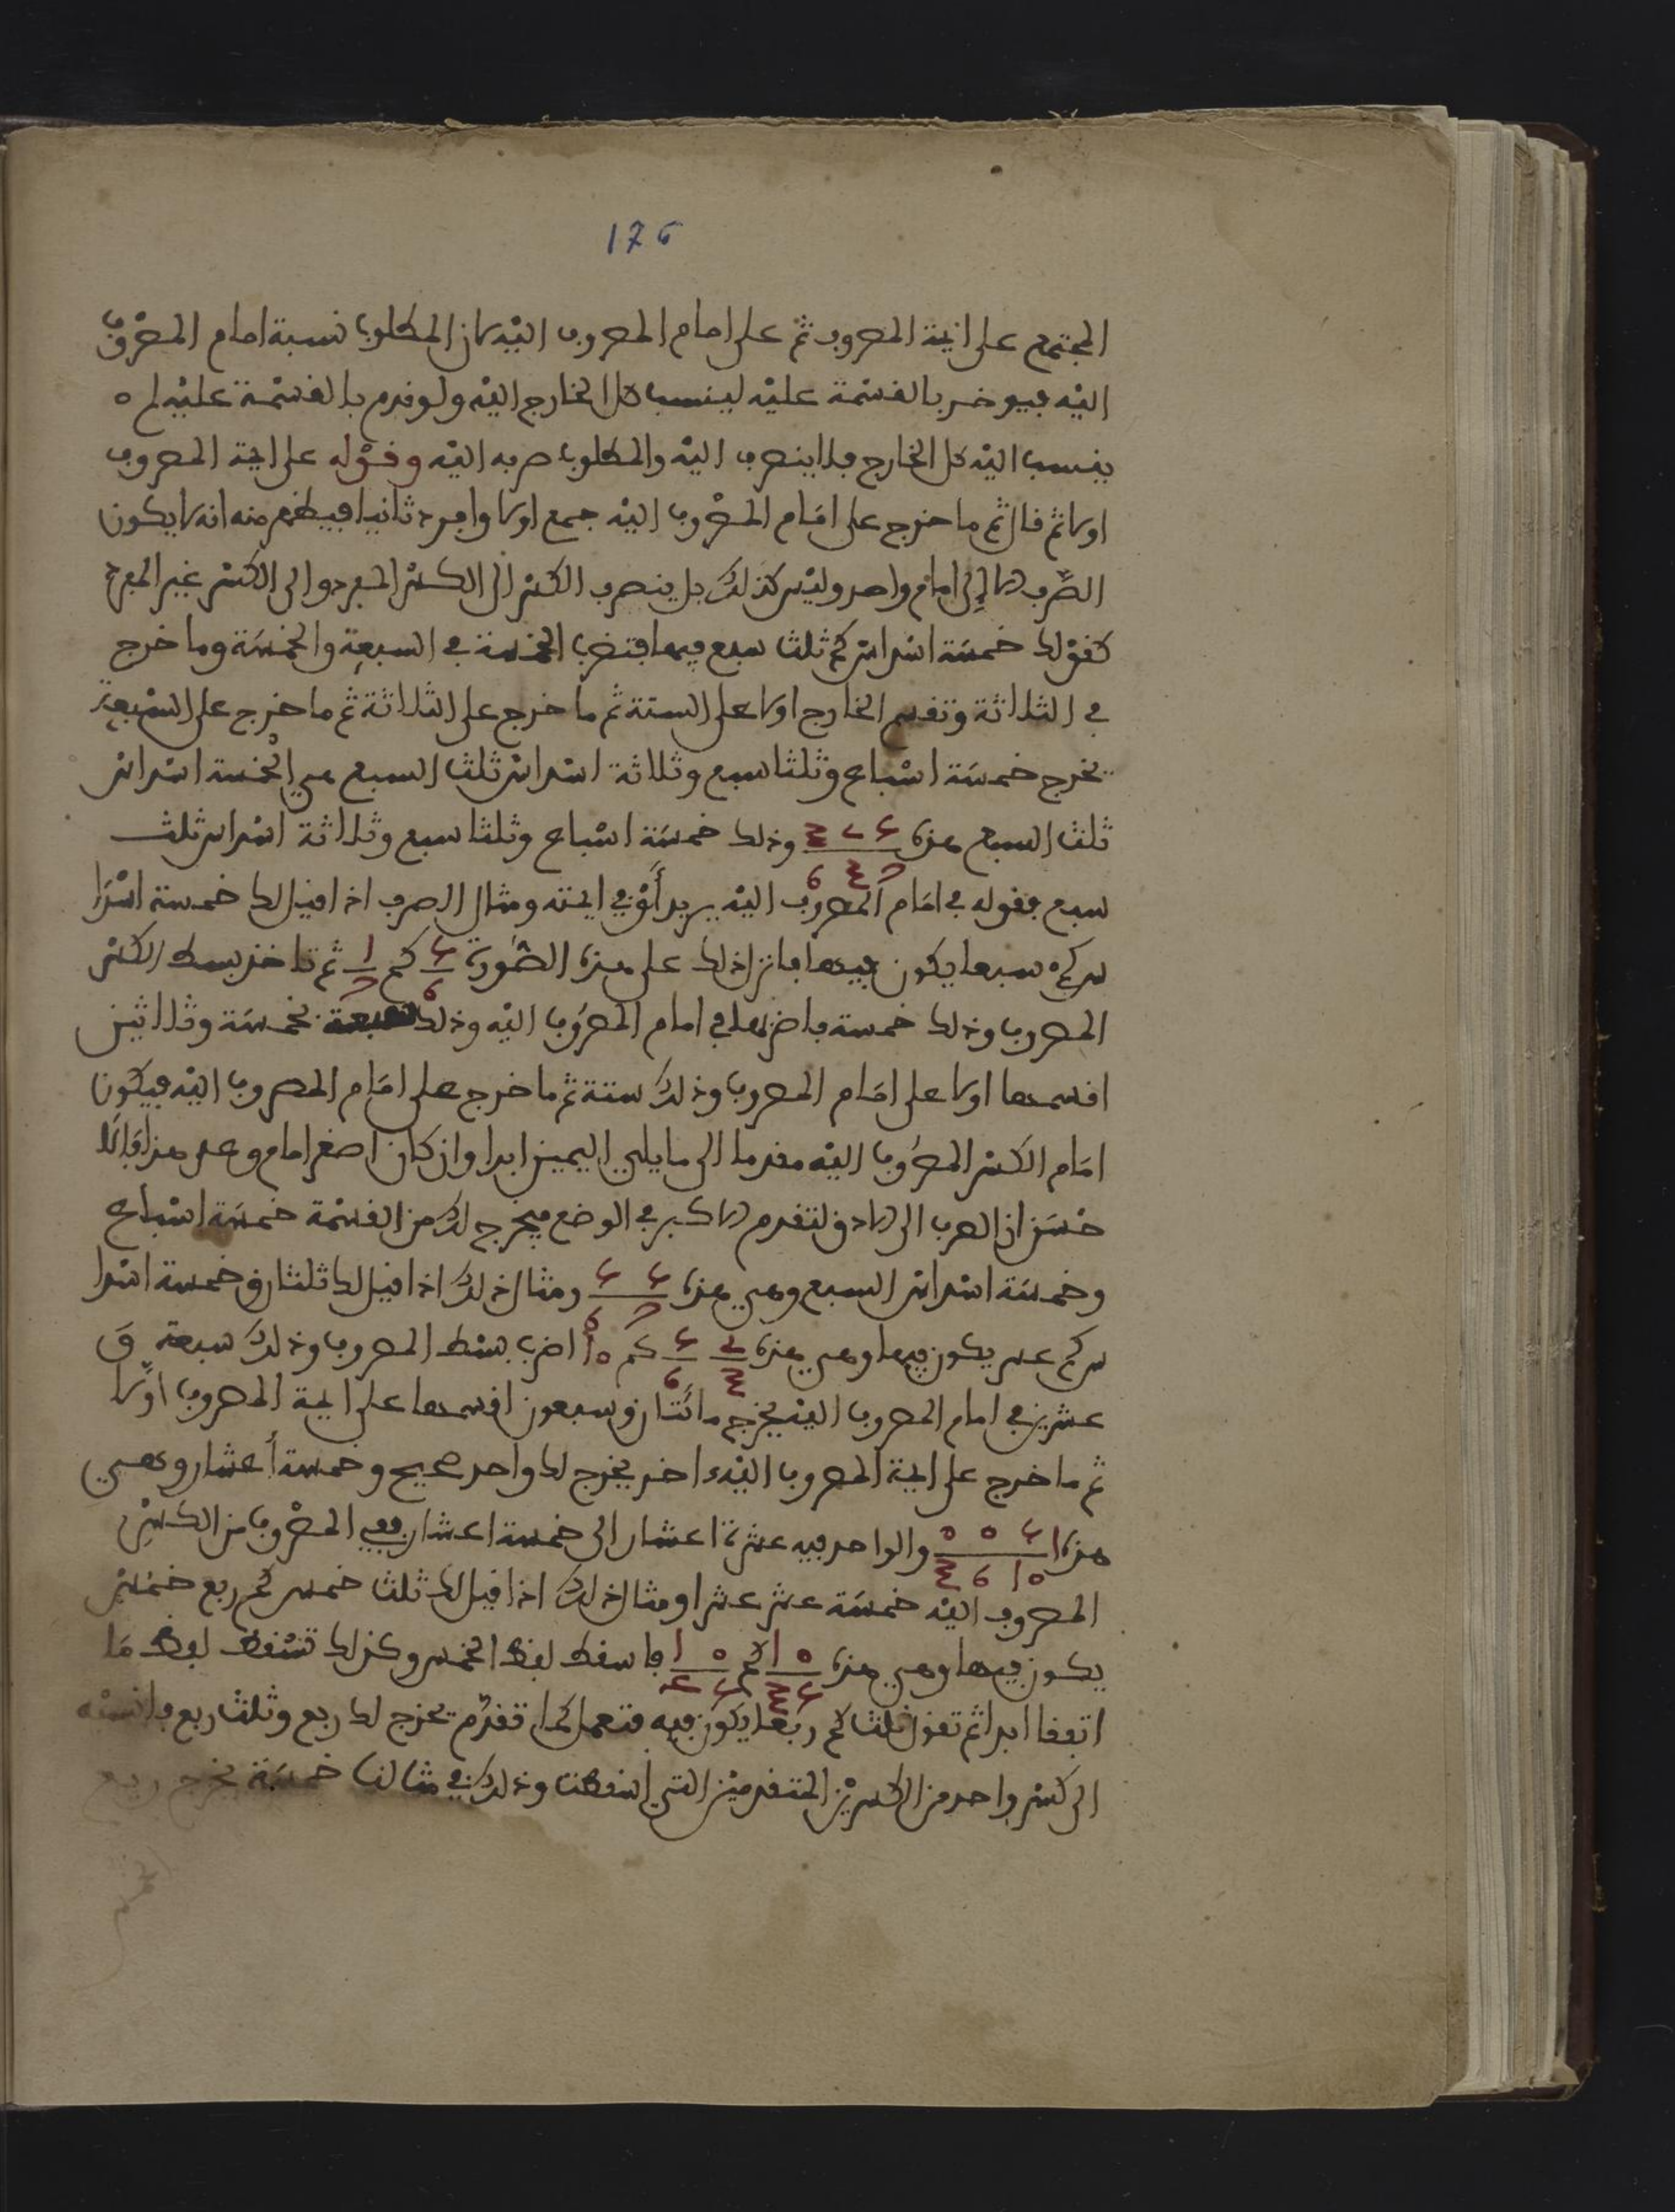 176
المجتمع على ايمة المصروف ثم على امام المصروف اليه لان المطلوب نسبة امام المصروف
اليه فيوخر بالقسمة عليه لينسب كل الخارج اليه ولو قدم بالقسمة عليه لم
ينسب اليه كل الخارج فلا ينصرف اليه والمطلوب صرفه اليه وقوله على ايمة المصروف
اولا ثم قال ثم ما خرج على امام المصروف اليه جمع اولا وافرد ثانيا فيظهر منه انه لا يكون
الصرف الا إلى امام واحد وليس كذلك بل ينصرف الكسر الى الكسر المفرد والى الكسر غير المفرد
كقولك خمسة اسداس كم ثلث سبع فيها فتضرب الخمسة في السبعة والخمسة وما خرج
في الثلاثة وتقسم الخارج اولا على الستة ثم ما خرج على الثلاثة ثم ما خرج على السبعة
يخرج خمسة اسباع وثلثا سبع وثلاثة اسداس ثلث السبع هي الخمسة اسداس
ثلث السبع هذه وذلك خمسة اسباع وثلثا سبع وثلاثة اسداس ثلث
سبع فقوله في امام المصروف اليه يريد أو في ايمته ومثال الصرف اذا قيل لك خمسة اسدا
س كم سبعا يكون فيها فانزل ذلك على هذه الصورة كم ثم تاخذ بسط الكسر
المصروف وذلك خمسة فاضربها في امام المصروف اليه وذلك سبعة بخمسة وثلاثين
اقسمها اولا على امام المصروف وذلك ستة ثم ما خرج على امام المصروف اليه فيكون
امام الكسر المصروف اليه مقدما الى ما يلي اليمين ابدا وان كان اصغر امام وعد هذا قائلا
حسن اذ الصرف الى الادق لتقدم الاكبر في الوضع فيخرج لك من القسمة خمسة اسباع
وخمسة اسداس السبع وهي هذه ومثال ذلك اذا قيل لك ثلثان وخمسة اسدا
س كم عشر يكون فيها وهي هذه كم اضرب بسط المصروف وذلك سبعة و
عشرين في امام المصروف اليه يخرج مائتان وسبعون اقسمها على ايمة المصروف اولا
ثم ما خرج على ايمة المصروف اليه اخر يخرج لك واحد صحيح وخمسة أعشار وهي
هذه والواحد فيه عشرة اعشار الى خمسة اعشار ففي المصروف من الكسر
المصروف اليه خمسة عشر عشرا ومثال ذلك اذا قيل لك ثلث خمس كم ربع خمس
يكون فيها وهي هذه كم فاسقط لفظ الخمس وكذلك تسقط لفظ ما
اتفقا ابدا ثم تقول ثلث كم ربعا يكون فيه فتعمل كما تقدم يخرج لك ربع وثلث ربع فانسبه
الى كسر واحد من الكسرين المتقدمين التي اسقطت وذلك في مثالنا خمسة يخرج ربع